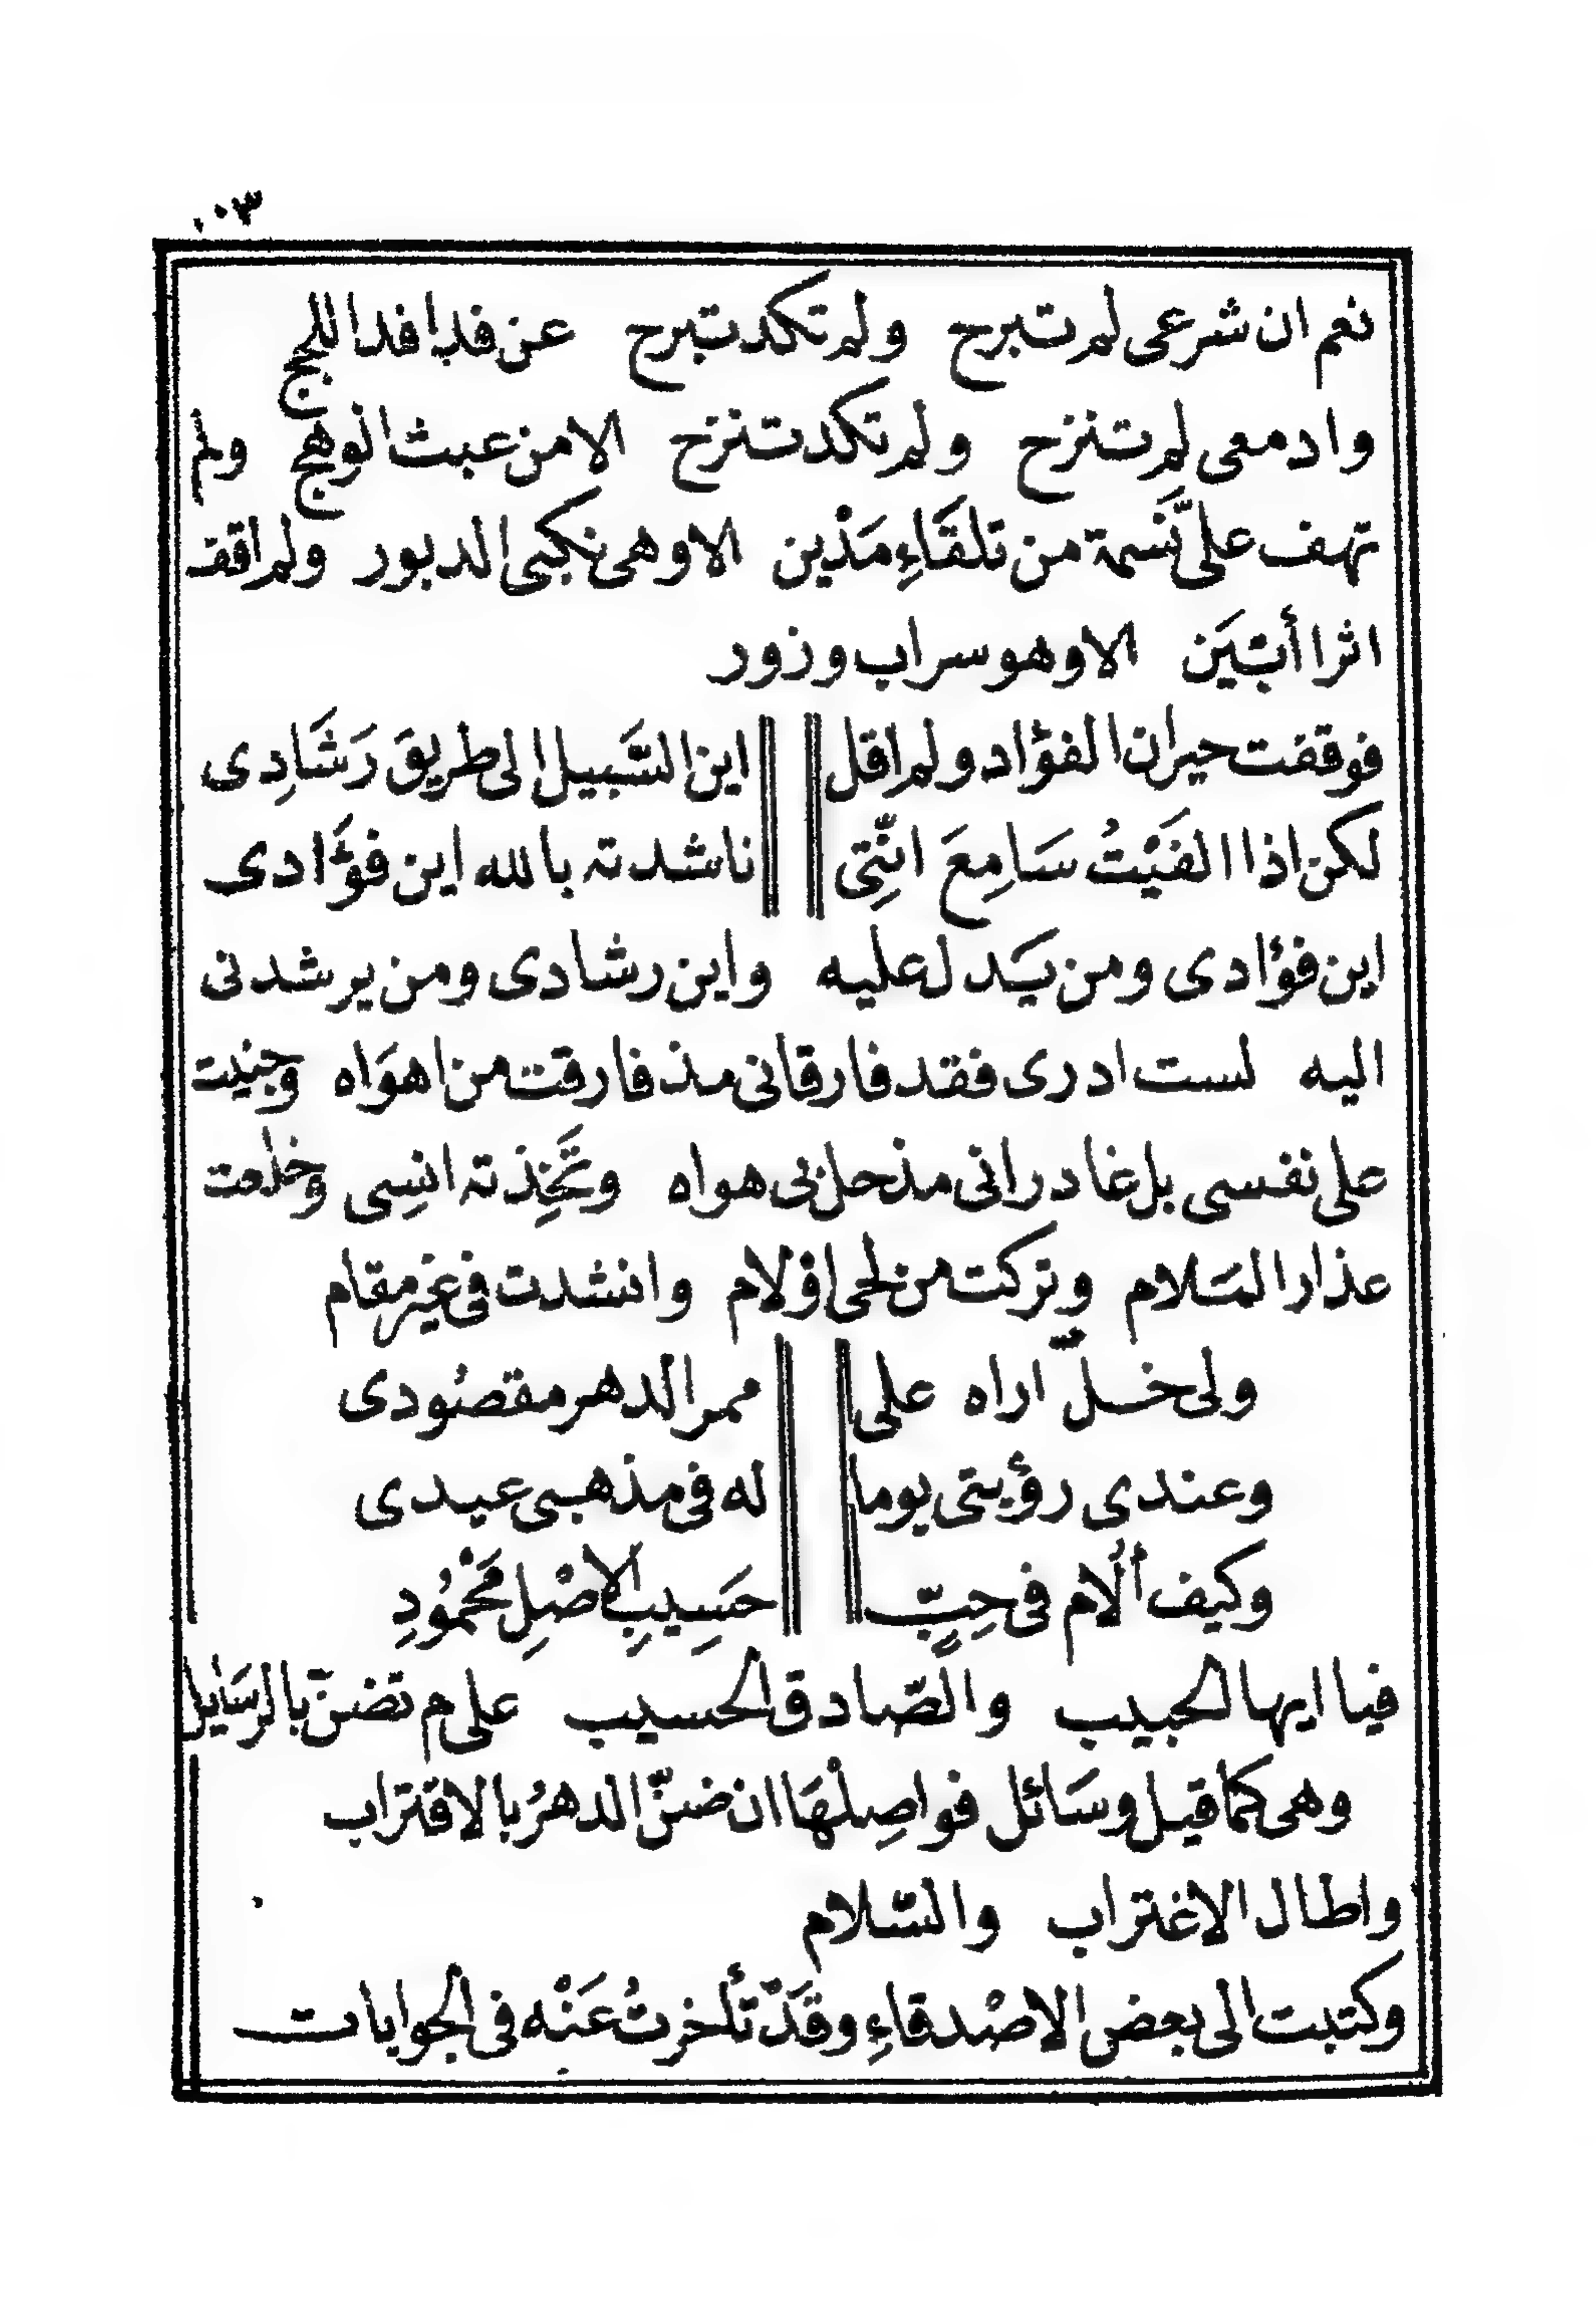 ١٠٣
نعم ان شرعى لم تبرح ولم تكد تبرح عن فدافد اللجج
وادمعى لم تنزح ولم تكد تنزح الا من عبث الوهج ولم
تهف علىّ نَسمة من تلقَاءِ مَدْين الا وهى نكبى الدبور ولم اقف
اثرا أتبَيَن الا وهو سراب وزور
فوقفت حيران الفؤاد ولم اقل اين السَّبيل الى طريق رَشَادِى
لكن اذا الفَيْتُ سَامِعَ انّتِى ناشدته بالله اين فؤَادى
اين فؤادى ومن يَدل عليه واين رشادى ومن يرشدنى
اليه لست ادرى فقد فارقانى مذ فارقت من اهوَاه وجنيت
على نفسى بل غادرانى مذ حل بى هواه وتَخِذته انسِى وخلعت
عذار المَلام وتركت من لحى او لام وانشدت فى غير مقام
ولى خلّ اراه على ممر الدهر مقصُودى
وعندى رؤيتى يوما له فى مذهبى عيدى
وكيف أُلام فى حِبٍّ حَسِيبِ الاصْلِ مَحْمُودِ
فيا ايها الحبيب والصّادق الحسيب على م تضنّ بالرسَايل
وهى كما قيل وسَائل فواصِلْهَا ان ضنّ الدهرُ بالاقتراب
واطال الاغتراب والسّلام
وكتبت الى بعض الاصْدقاءِ وقَدْ تأخرتُ عَنْه فى الجوابات